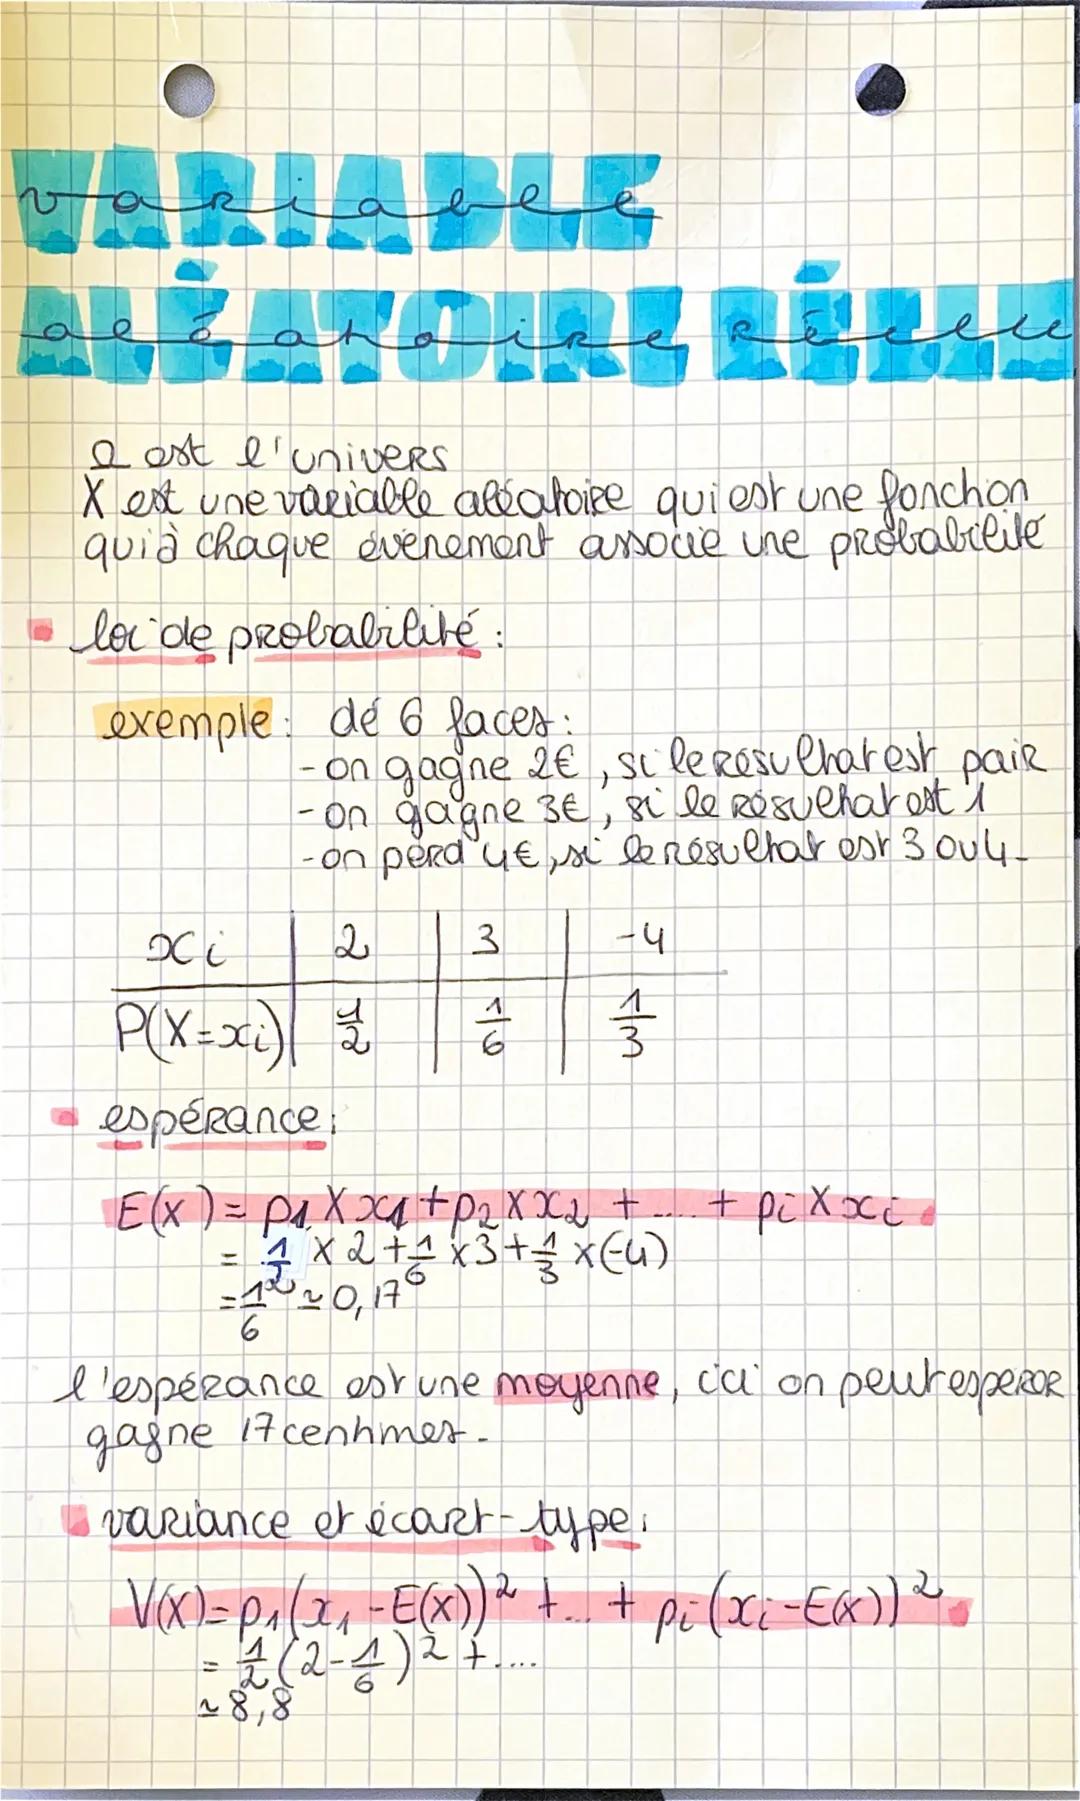 VARIABLE
variable
ALÉATOIRE RÉELLE
aléatoire réelle
Ω est l'univers
X est une variable aléatoire qui est une fonction
qui à chaque évènement associe une probabilité
loi de probabilité :
exemple : dé 6 faces :
- on gagne 2€, si le résultat est pair
- on gagne 3€, si le résultat est 1
- on perd 4€, si le résultat est 3 ou 4.
xi | 2 | 3 | -4
P(X=xi) | 1/2 | 1/6 | 1/3
espérance :
E(X) = p1 × x1 + p2 × x2 + .... + pi × xi
= 1/2 × 2 + 1/6 × 3 + 1/3 × (-4)
= 1/6 ≃ 0,17
l'espérance est une moyenne, ici on peut esperer
gagne 17 centimes.
variance et écart-type :
V(X) = p1(x1 - E(X))² + ... + pi(xi - E(X))²
= 1/2 (2 - 1/6)² + ....
≃ 8,8